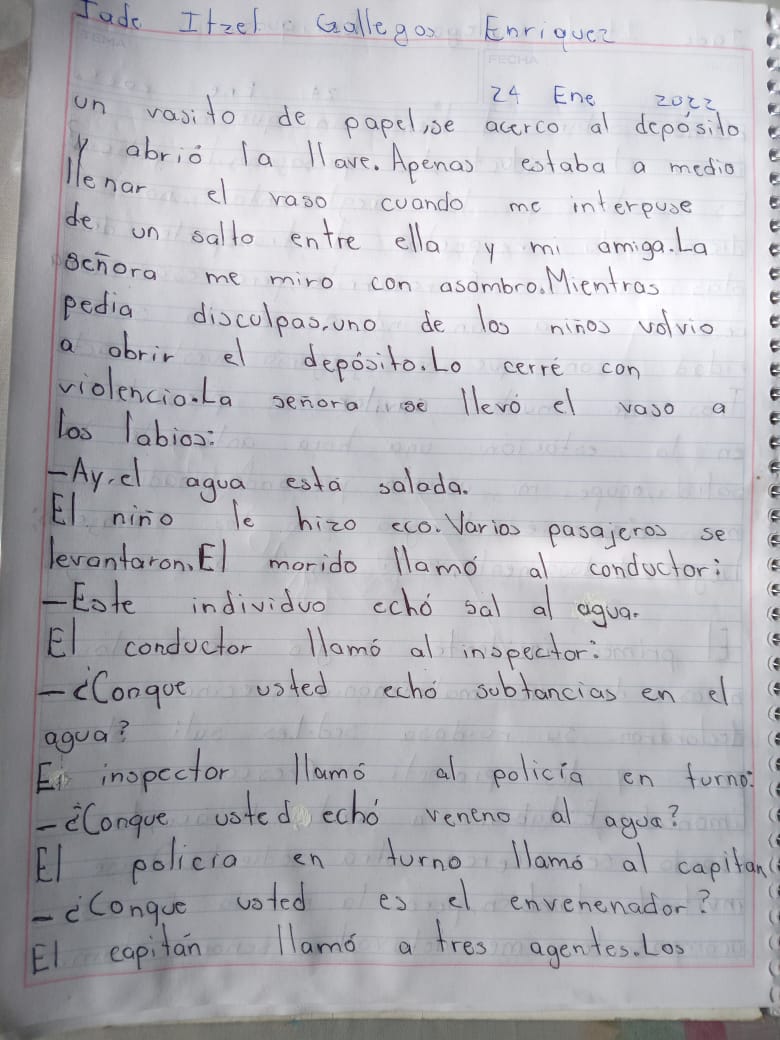 Jade Itzel Gallegos Enriquez
FECHA
24 Ene 2022
un vasito de papel, se acerco al depósito
y abrió la llave. Apenas estaba a medio
llenar el vaso cuando me interpuse
de un salto entre ella y mi amiga. La
señora me miro con asombro. Mientras
pedia disculpas, uno de los niños volvio
a abrir el depósito. Lo cerré con
violencio. La señora se llevó el vaso a
los labios:
-Ay, el agua está salada.
El niño le hizo eco. Varios pasajeros se
levantaron. El morido llamó al conductor:
-Este individuo echó sal al agua.
El conductor llamó al inspector:
-¿Conque usted echó subtancias en el
agua?
El inspector llamó al policía en turno:
-¿Conque usted echó veneno al agua?
El policía en turno llamó al capitan
-¿Conque usted es el envenenador?
El capitán llamó a tres agentes. Los